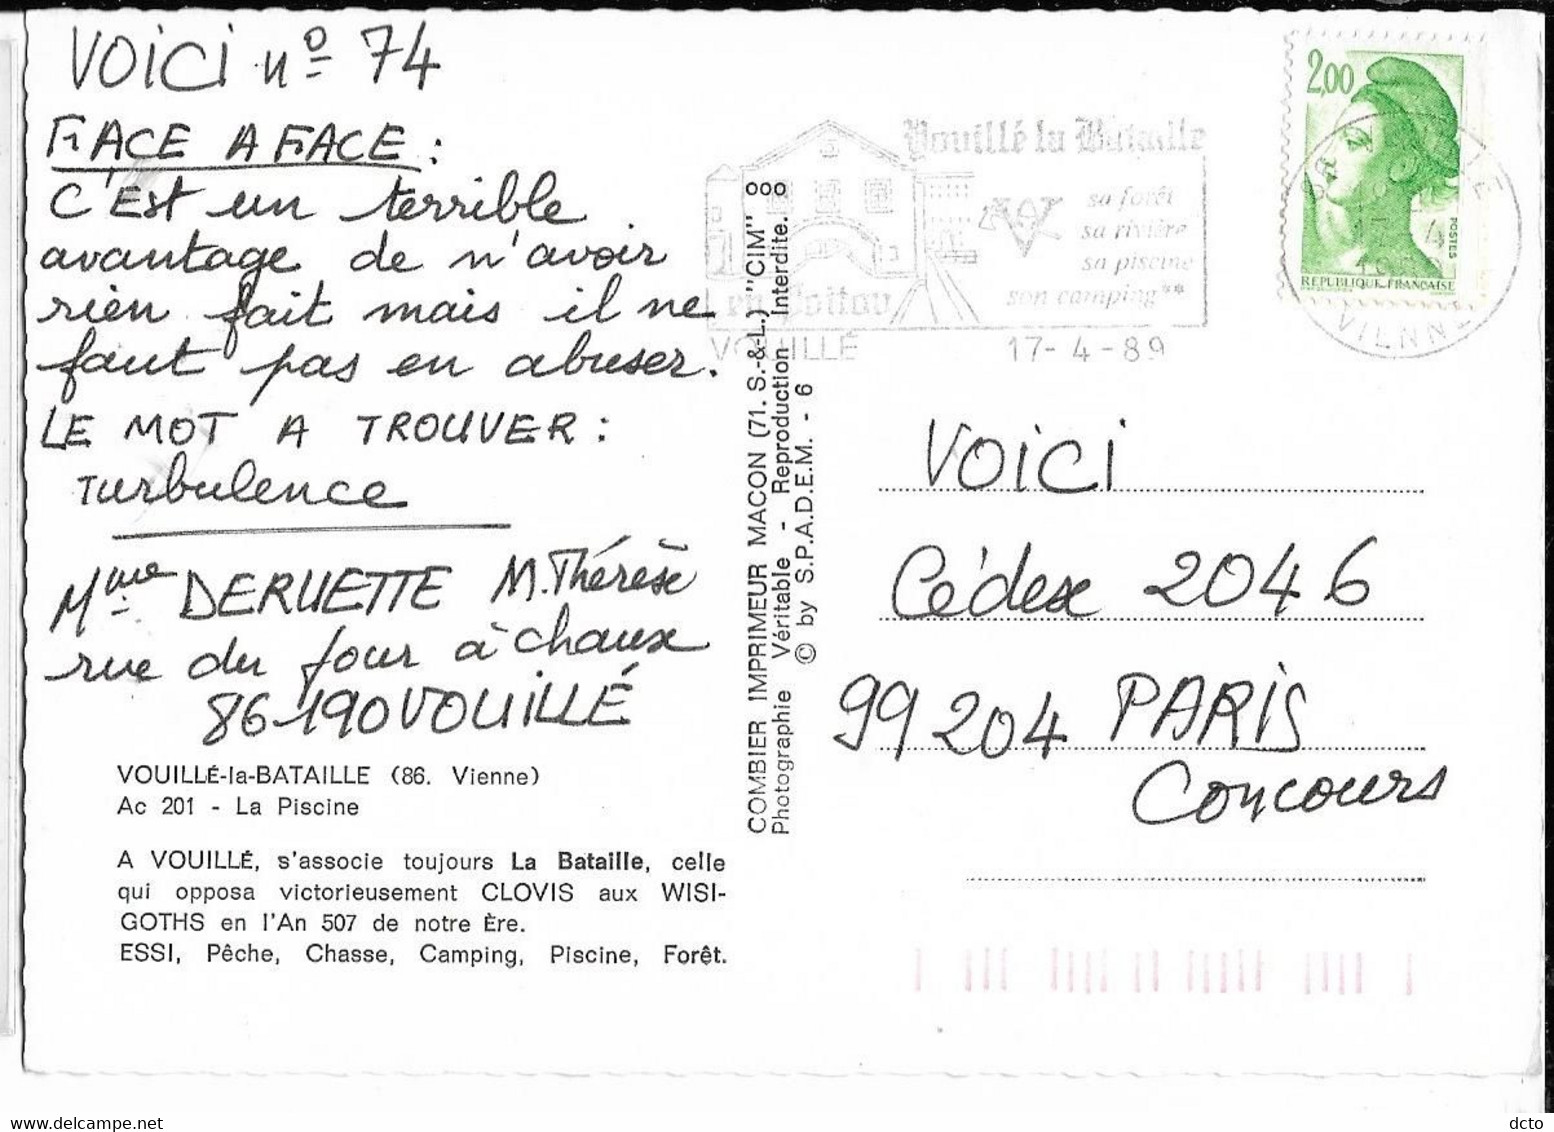 VOICI nº 74
FACE A FACE :
C'Est un terrible
avantage de n'avoir
rien fait mais il ne
faut pas en abuser.
LE MOT A TROUVER :
Turbulence
Mme DERUETTE M. Thérèse
rue du four à chaux
86190 VOUILLÉ
VOUILLÉ-la-BATAILLE (86. Vienne)
Ac 201 - La Piscine
A VOUILLÉ, s'associe toujours La Bataille, celle
qui opposa victorieusement CLOVIS aux WISI-
GOTHS en l'An 507 de notre Ère.
ESSI, Pêche, Chasse, Camping, Piscine, Forêt.
COMBIER IMPRIMEUR MACON (71. S.-&-L.) "CIM" ooo
Photographie Véritable - Reproduction Interdite.
© by S.P.A.D.E.M. - 6
Vouillé la Bataille
sa forêt
sa rivière
sa piscine
son camping**
en Poitou
VOUILLÉ 17-4-89
2,00
POSTES
REPUBLIQUE FRANÇAISE
VIENNE
VOICI
Cédex 2046
99204 PARIS
Concours
dcto